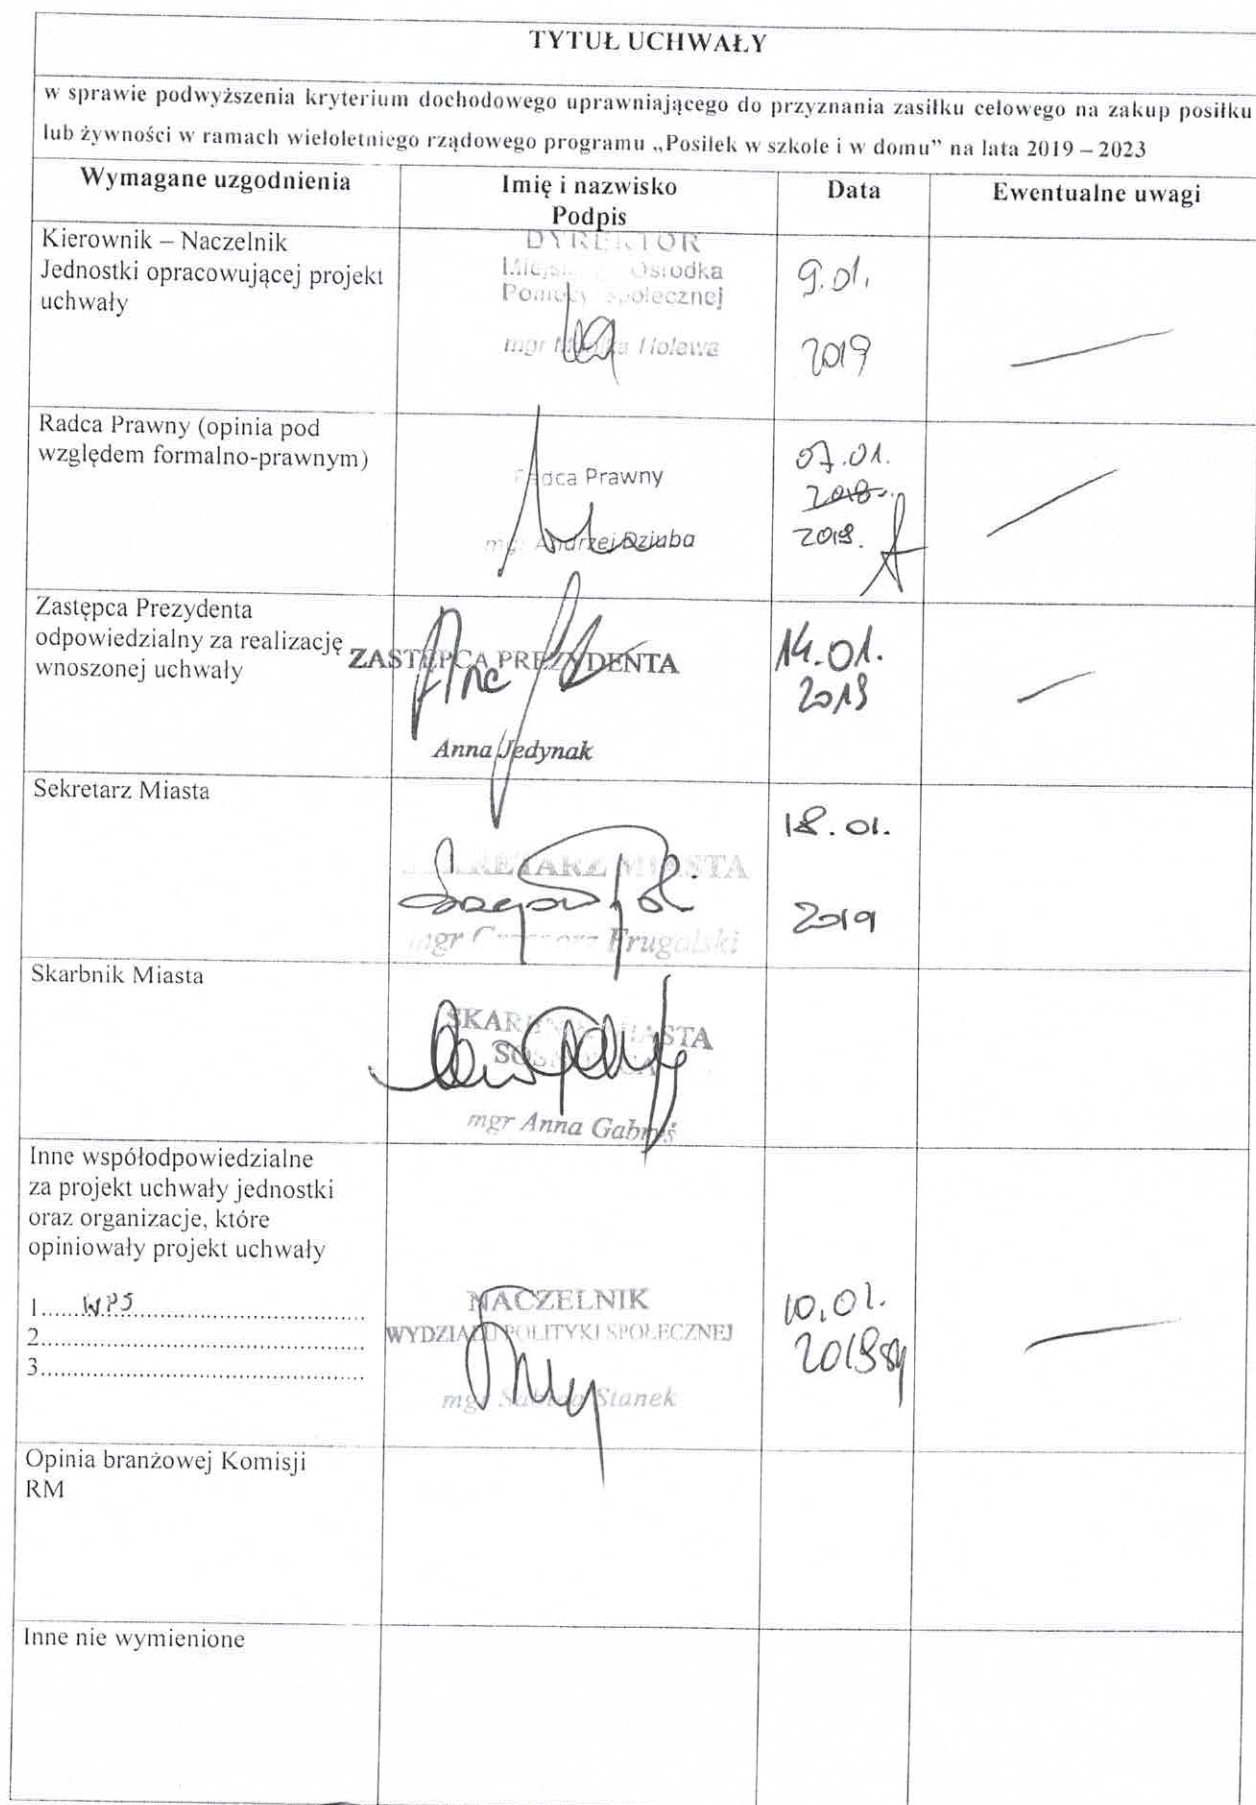 TYTUŁ UCHWAŁY
w sprawie podwyższenia kryterium dochodowego uprawniającego do przyznania zasiłku celowego na zakup posiłku
lub żywności w ramach wieloletniego rządowego programu „Posiłek w szkole i w domu” na lata 2019 – 2023
Wymagane uzgodnienia
Imię i nazwisko
Podpis
Data
Ewentualne uwagi
Kierownik – Naczelnik
Jednostki opracowującej projekt
uchwały
DYREKTOR
Ośrodka
Pomocy Społecznej
mgr Monika Holewa
9.01.
2019
Radca Prawny (opinia pod
względem formalno-prawnym)
Radca Prawny
mgr Andrzej Dziuba
07.01.
2018.
2019.
Zastępca Prezydenta
odpowiedzialny za realizację
wnoszonej uchwały
ZASTĘPCA PREZYDENTA
Anna Jedynak
14.01.
2019
Sekretarz Miasta
SEKRETARZ MIASTA
mgr Grzegorz Frugalski
18.01.
2019
Skarbnik Miasta
SKARBNIK MIASTA
SOSNOWCA
mgr Anna Gabryś
Inne współodpowiedzialne
za projekt uchwały jednostki
oraz organizacje, które
opiniowały projekt uchwały
1......WPS
2
3
NACZELNIK
WYDZIAŁU POLITYKI SPOŁECZNEJ
mgr Sabina Stanek
10.01.
2019
Opinia branżowej Komisji
RM
Inne nie wymienione